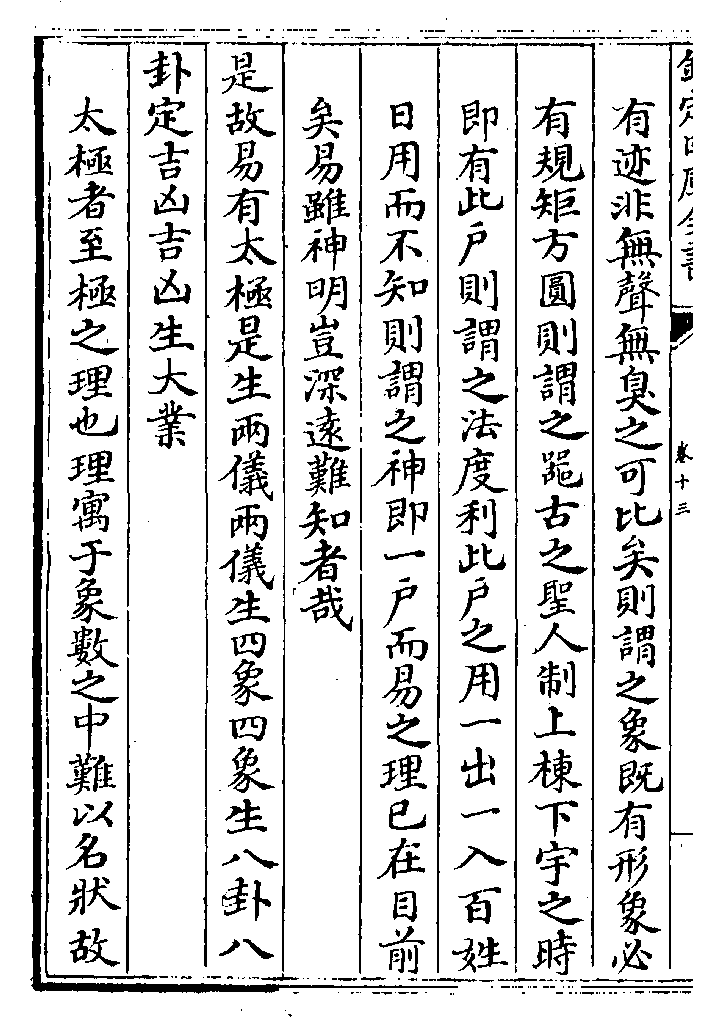 欽定四庫全書
卷十三
有迹非無聲無臭之可比矣則謂之象既有形象必
有規矩方圓則謂之噐古之聖人制上棟下宇之時
即有此戶則謂之法度利此戶之用一出一入百姓
日用而不知則謂之神即一戶而易之理已在目前
矣易雖神明豈深遠難知者哉
是故易有太極是生兩儀兩儀生四象四象生八卦八
卦定吉凶吉凶生大業
太極者至極之理也理寓于象數之中難以名狀故